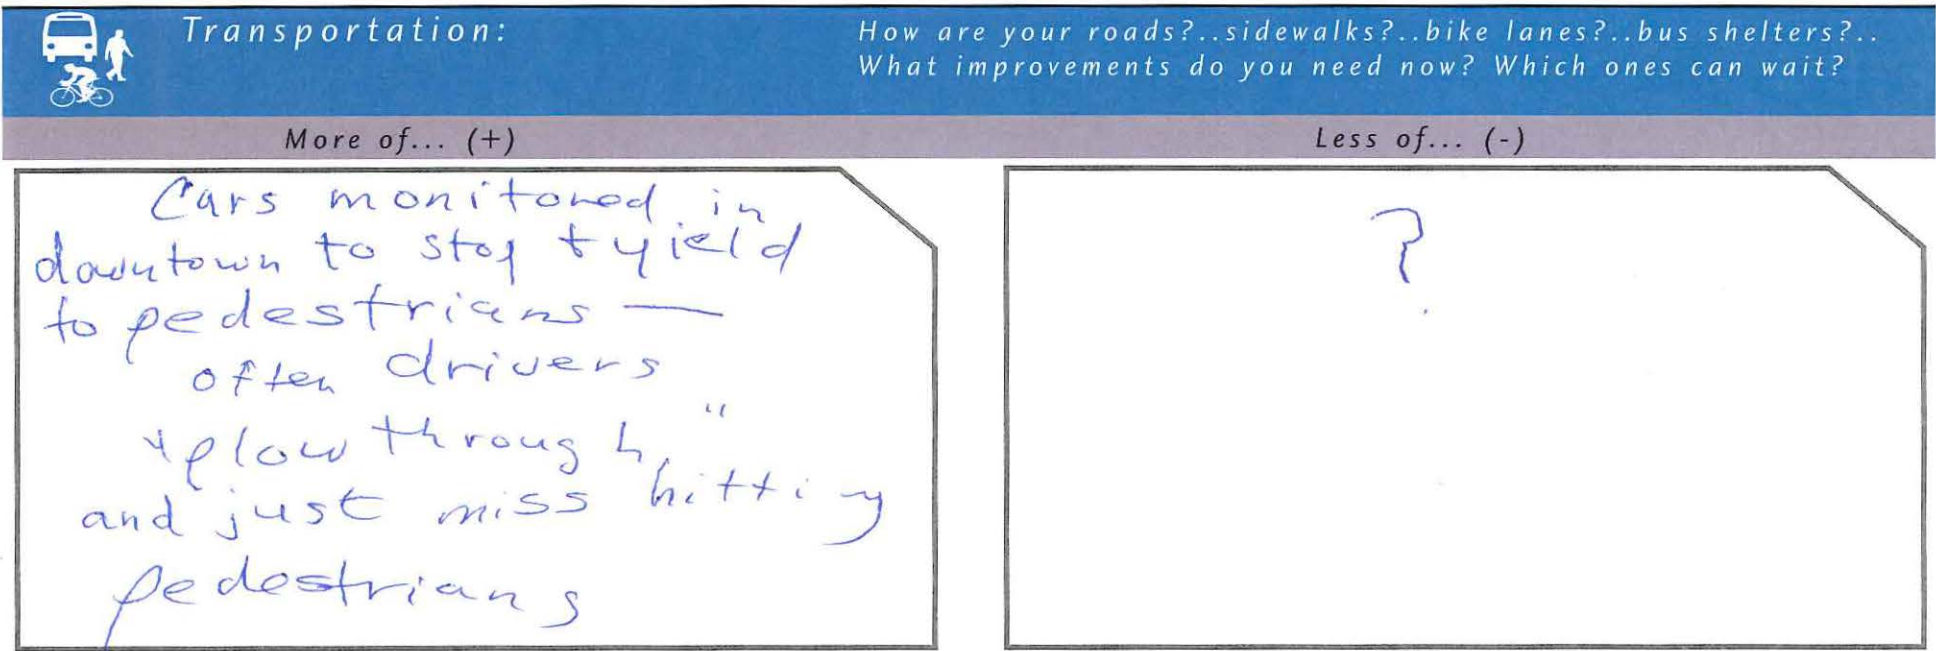 Transportation:
How are your roads?..sidewalks?..bike lanes?..bus shelters?..
What improvements do you need now? Which ones can wait?
More of... (+)
Less of... (-)
Cars monitored in
downtown to stop + yield
to pedestrians —
often drivers
"plow through"
and just miss hitting
pedestrians
?